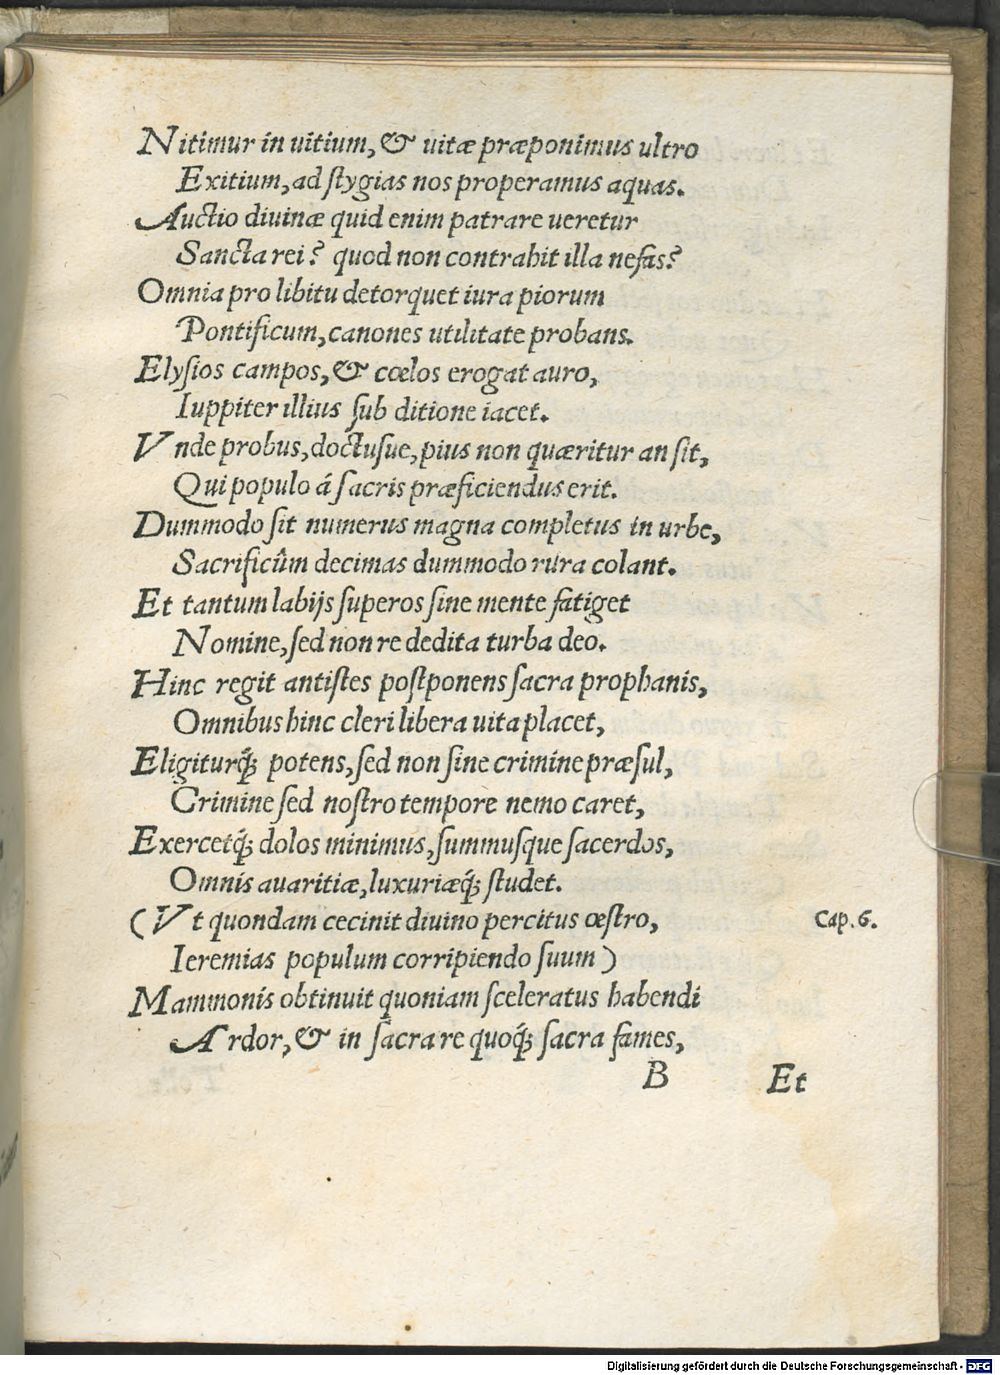 Nitimur in uitium, & uitæ præponimus ultro
Exitium, ad ſtygias nos properamus aquas.
Auctio diuinæ quid enim patrare ueretur
Sancta rei? quod non contrahit illa nefas?
Omnia pro libitu detorquet iura piorum
Pontificum, canones utilitate probans.
Elyſios campos, & cœlos erogat auro,
Iuppiter illius ſub ditione iacet.
Vnde probus, doctuſue, pius non quæritur an ſit,
Qui populo á ſacris præficiendus erit.
Dummodo ſit numerus magna completus in urbe,
Sacrificûm decimas dummodo rura colant.
Et tantum labijs ſuperos ſine mente fatiget
Nomine, ſed non re dedita turba deo.
Hinc regit antiſtes poſtponens ſacra prophanis,
Omnibus hinc cleri libera uita placet,
Eligiturq́; potens, ſed non ſine crimine præſul,
Crimine ſed noſtro tempore nemo caret,
Exercetq́; dolos minimus, ſummuſque ſacerdos,
Omnis auaritiæ, luxuriæq́; ſtudet.
(Vt quondam cecinit diuino percitus œſtro, Cap. 6.
Ieremias populum corripiendo ſuum)
Mammonis obtinuit quoniam ſceleratus habendi
Ardor, & in ſacra re quoq́; ſacra fames,
B Et
Digitalisierung gefördert durch die Deutsche Forschungsgemeinschaft - DFG